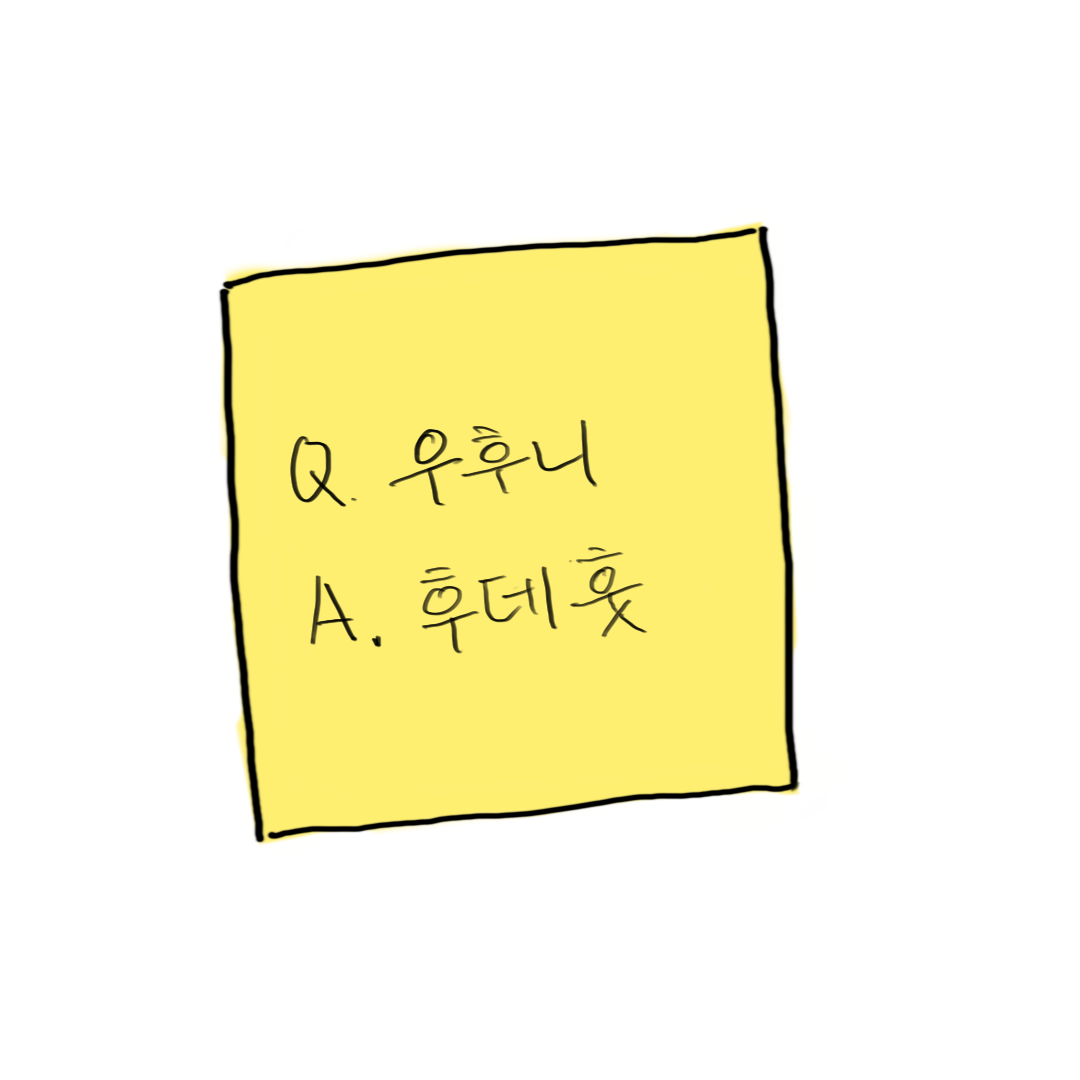 Q. 우후니
A. 후데훗